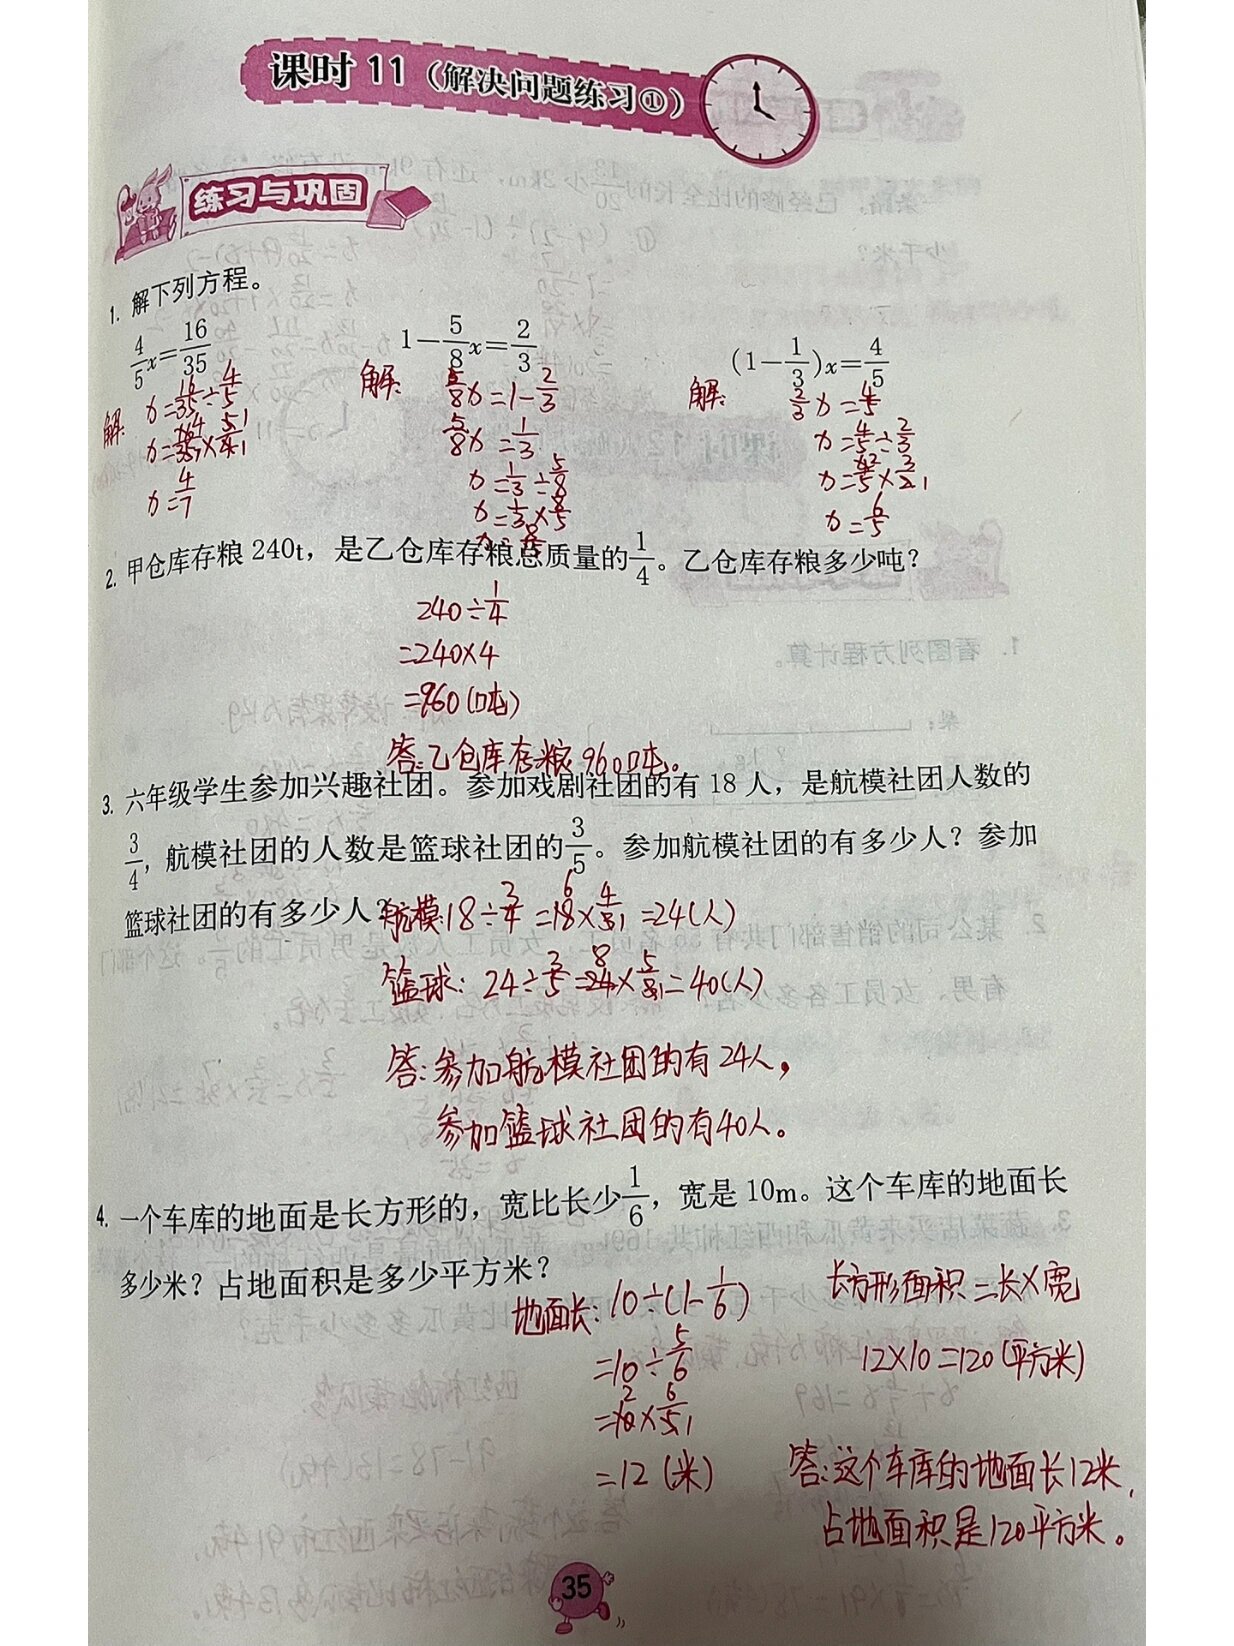 课时 11（解决问题练习①）
练习与巩固
1. 解下列方程。
4/5x=16/35
1-5/8x=2/3
(1-1/3)x=4/5
解: x=16/35÷4/5
x=16/35×5/4
x=4/7
解: 5/8x=1-2/3
5/8x=1/3
x=1/3÷5/8
x=1/3×8/5
x=8/15
解: 2/3x=4/5
x=4/5÷2/3
x=4/5×3/2
x=6/5
2. 甲仓库存粮 240t，是乙仓库存粮总质量的1/4。乙仓库存粮多少吨？
240÷1/4
=240×4
=960(吨)
答:乙仓库存粮960吨。
3. 六年级学生参加兴趣社团。参加戏剧社团的有 18 人，是航模社团人数的
3/4，航模社团的人数是篮球社团的3/5。参加航模社团的有多少人？参加
篮球社团的有多少人？
航模:18÷3/4=18×4/3=24(人)
篮球: 24÷3/5=24×5/3=40(人)
答:参加航模社团的有24人，
参加篮球社团的有40人。
4. 一个车库的地面是长方形的，宽比长少1/6，宽是 10m。这个车库的地面长
多少米？占地面积是多少平方米？
地面长: 10÷(1-1/6)
=10÷5/6
=10×6/5
=12 (米)
长方形面积=长×宽
12×10=120(平方米)
答:这个车库的地面长12米，
占地面积是120平方米。
35